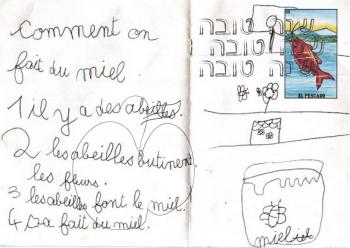 comment on
fait du miel.
1 il y a des abeilles.
2 les abeilles butinent
les fleurs.
3 les abeilles font le miel.
4 ça fait du miel.
שנה טובה
שנה טובה
שנה טובה
EL PESCADO
miel